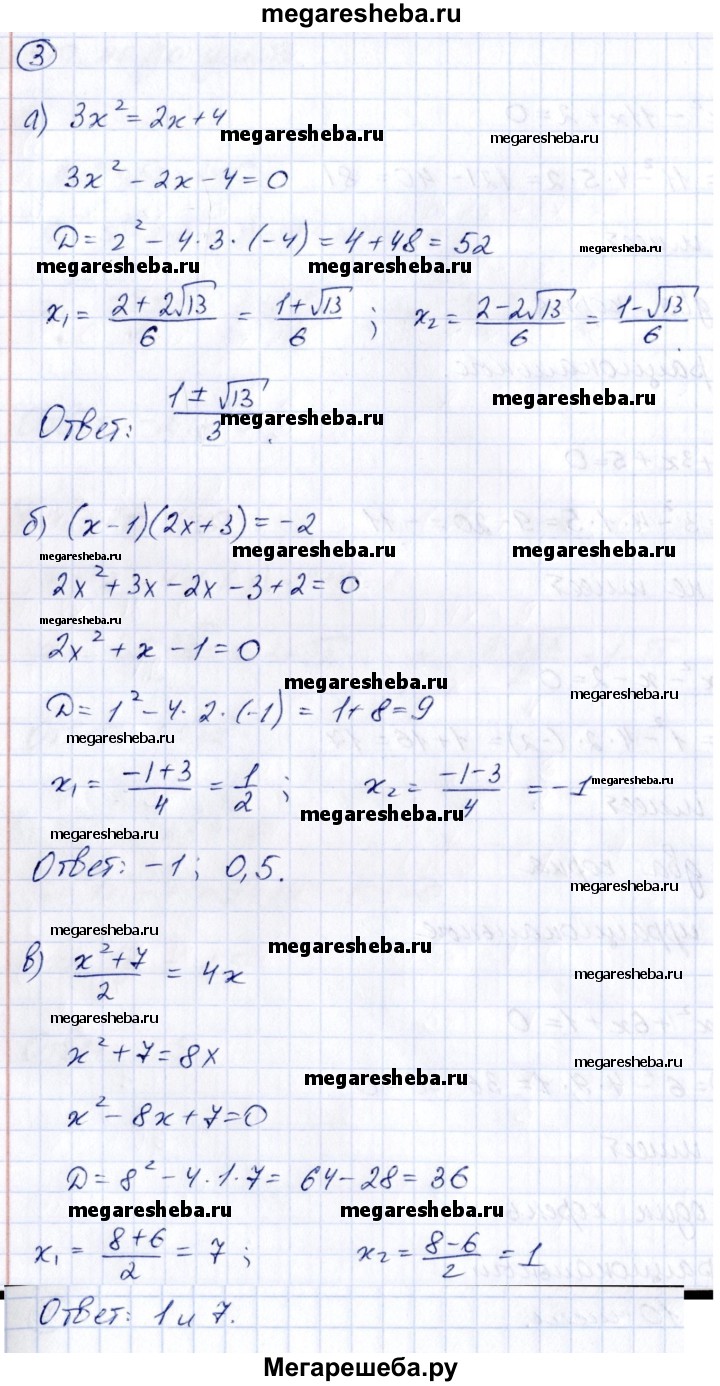 megaresheba.ru
3
а) 3x² = 2x + 4
megaresheba.ru megaresheba.ru
3x² - 2x - 4 = 0
D = 2² - 4 · 3 · (-4) = 4 + 48 = 52
megaresheba.ru megaresheba.ru megaresheba.ru
x₁ = (2 + 2√13)/6 = (1 + √13)/6 ; x₂ = (2 - 2√13)/6 = (1 - √13)/6 .
megaresheba.ru
Ответ: (1 ± √13)/3 .
megaresheba.ru
б) (x - 1)(2x + 3) = -2
megaresheba.ru megaresheba.ru
2x² + 3x - 2x - 3 + 2 = 0
megaresheba.ru
2x² + x - 1 = 0
megaresheba.ru megaresheba.ru
D = 1² - 4 · 2 · (-1) = 1 + 8 = 9
megaresheba.ru
x₁ = (-1 + 3)/4 = 1/2 ; x₂ = (-1 - 3)/4 = -1
megaresheba.ru
megaresheba.ru
megaresheba.ru
Ответ: -1; 0,5.
megaresheba.ru
megaresheba.ru
megaresheba.ru
в) (x² + 7)/2 = 4x
megaresheba.ru
megaresheba.ru
x² + 7 = 8x
megaresheba.ru
megaresheba.ru
x² - 8x + 7 = 0
D = 8² - 4 · 1 · 7 = 64 - 28 = 36
megaresheba.ru megaresheba.ru
x₁ = (8 + 6)/2 = 7 ; x₂ = (8 - 6)/2 = 1
Ответ: 1 и 7.
Мегарешеба.ру